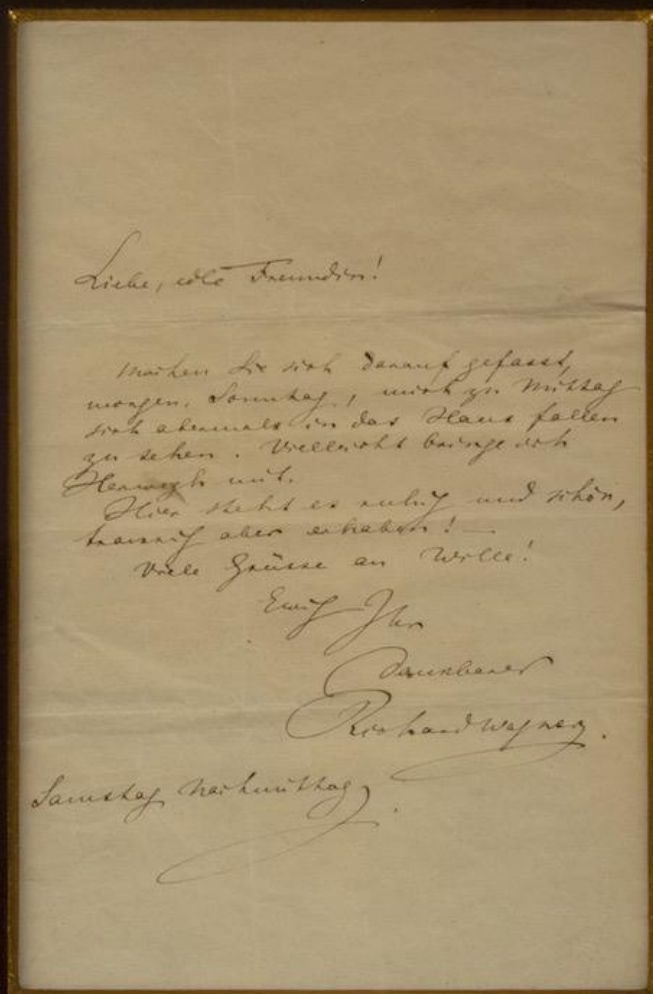 Liebe, edle Freundin!
Machen Sie sich darauf gefasst,
morgen, Sonntag, mich zu Mittag
sich abermals in das Haus fallen
zu sehen. Vielleicht bringe ich
Herwegh mit.
Hier steht es ruhig und schön,
traurig aber erhaben! —
Viele Grüsse an Wille!
Ewig Ihr
dankbarer
Richard Wagner.
Samstag Nachmittag.